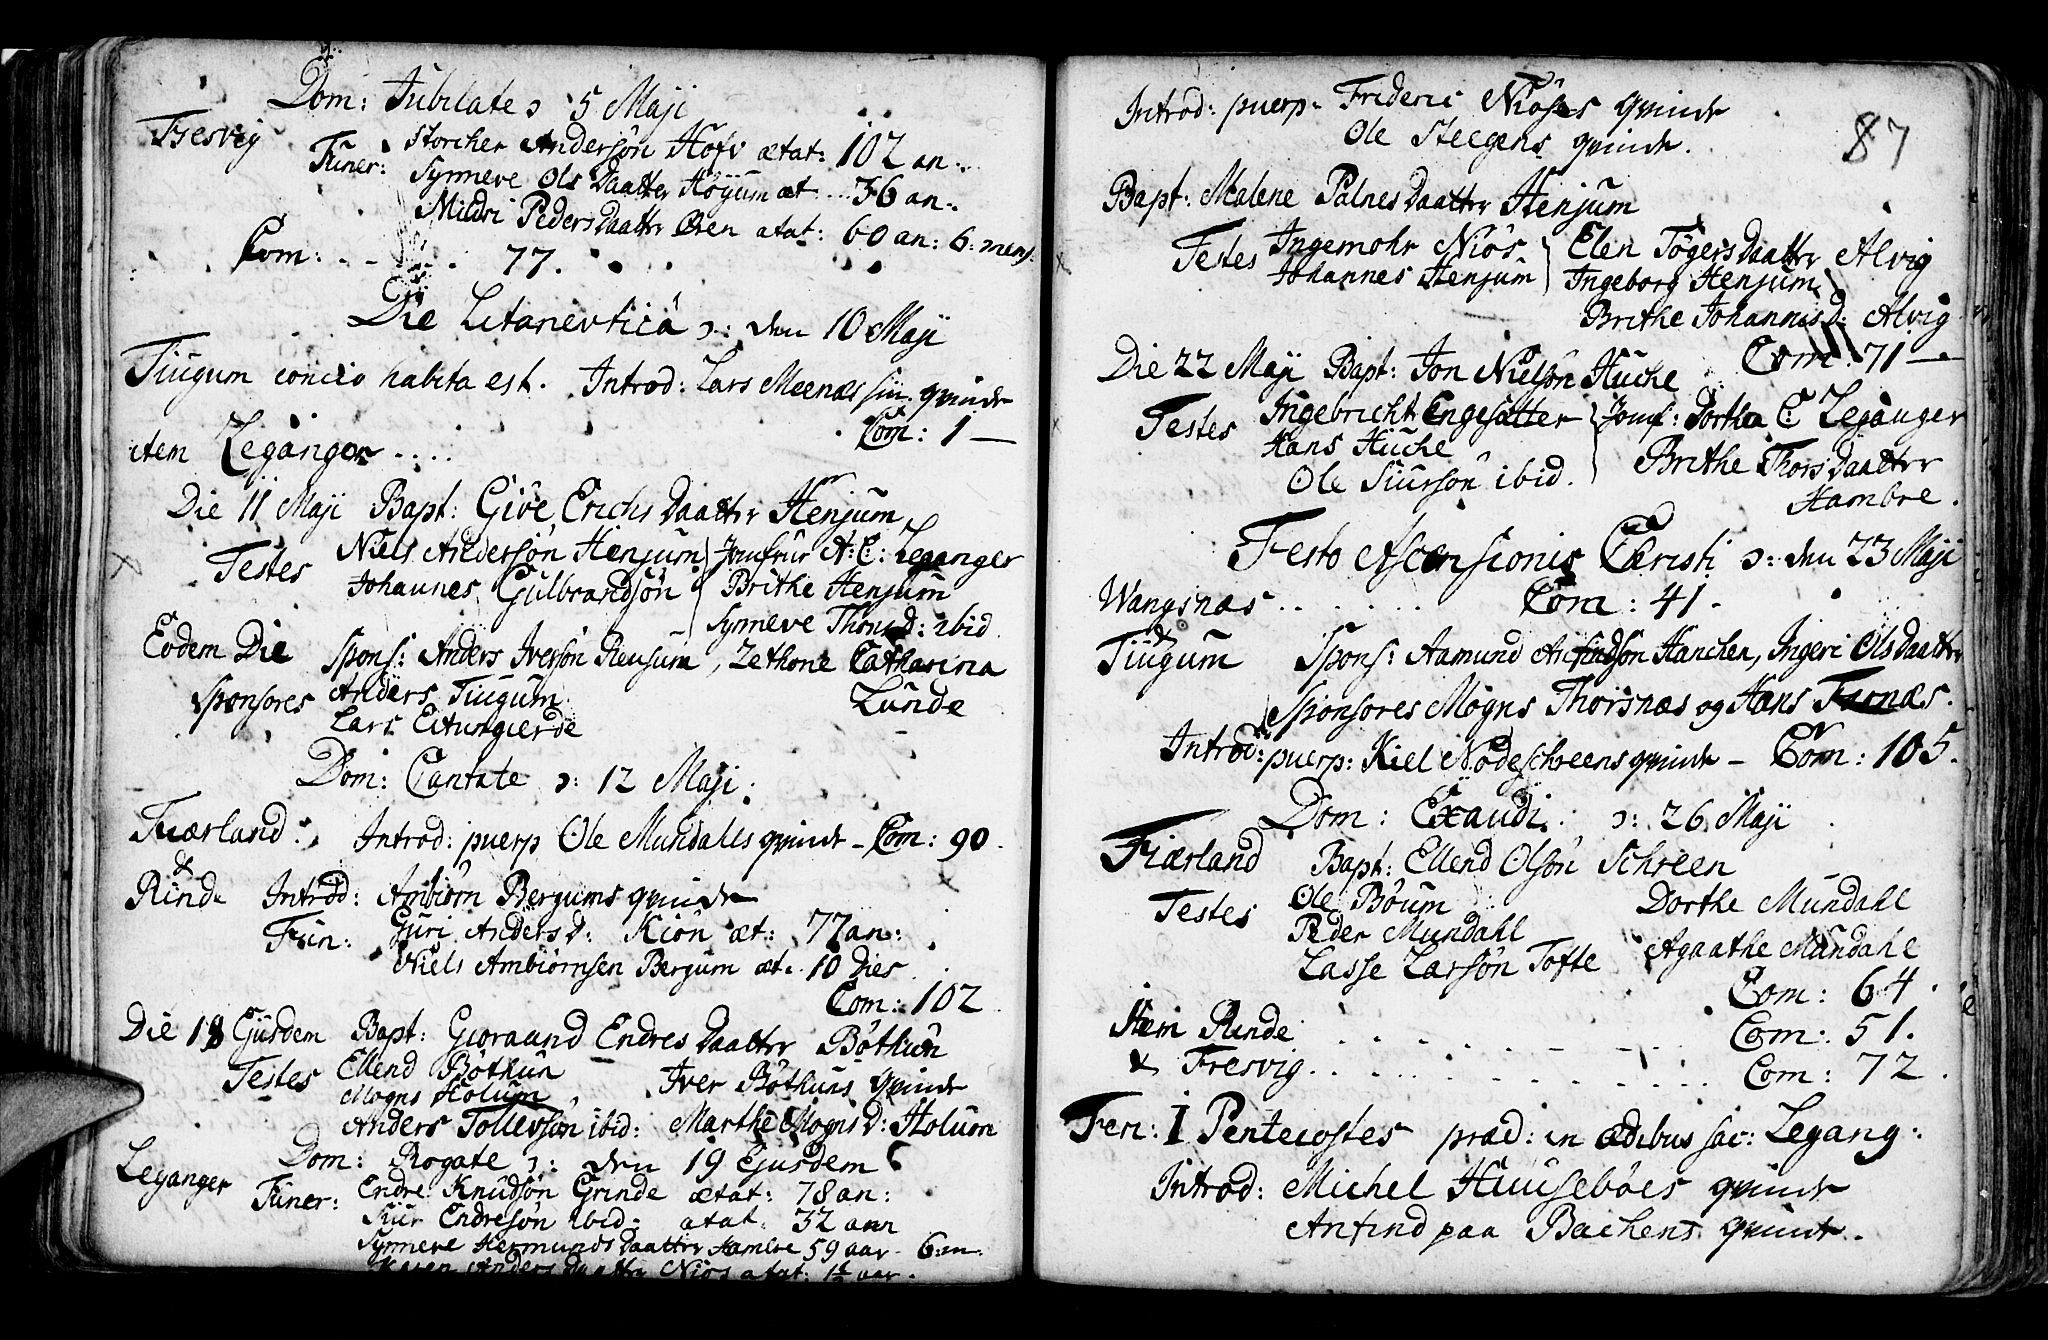 Dom: Jubilate ɔ 5 Maji
Fresvig Funer: Storcker Andersøn Hofv ætat: 102 an:
Synneve Ols Daatter Høyum æt 36 an:
Mildri Peders Daatter Øren ætat: 60 an: 6: mens
Com: . . . . 77.
Die Litanevtica ɔ: den 10 Maji
Tiugum concio habita est. Introd: Lars Meenæs sin qvinde
Com: 1 —
item Leganger . . . .
Die 11 Maji Bapt: Giøe Erichs Daatter Henjum
Testes Niels Andersøn Henjum Jomfrur A: C: Leganger
Johannes Gulbrandsøn Brithe Henjum
Synneve Thons D: ibid
Eodem Die Spons: Anders Iversøn Reusum, Zethone Catharina
Lunde
Sponsores Anders Tiugum
Lars Eitungierde
Dom: Cantate ɔ: 12 Maji:
Fiærland: Introd: puerp Ole Mundalls qvinde – Com: 90.
&
Rinde Introd: Ambiørn Bergums qvinde
Fun: Guri Anders D: Kiøn æt: 77 an:
Niels Ambiørnsen Bergum æt: 10 Dies
Com: 102
Die 18 Ejusdem Bapt: Gioraand Endres Daatter Bøthun
Testes Ellend Bøthun Iver Bøthuns Qvinde
Mogns Holum,
Anders Tollevsøn ibid: Marthe Mogns D: Holum
Dom: Rogate ɔ: den 19 Ejusdem
Leganger Funer: Endre Knudsøn Grinde ætat: 78 an:
Siur Endresøn ibid: ætat: 32 ann
Synneve Hermunds Daatter Hambre 59 aar 6: m
Karen Anders Daatter Niøs ætat: 1½ aar.
87
Introd: puerp: Frideric Niøses qvinde
Ole Steegens qvinde.
Bapt: Malene Palnes Daatter Henjum
Testes Ingemohr Niøs Elen Tøgers Daatter Alvig
Johannes Henjum Ingeborg Henjum
Brithe Johannis D: Alvig
Com: 71 —
Die 22 Maji Bapt: Jon Nielsøn Huche
Testes Ingebricht Engesætter Jomf: Dorthea C: Leganger
Hans Huche Brithe Thors Daatter
Ole Siursøn ibid. Hambre.
Festo Ascensionis Christi ɔ: den 23 Maji
Wangsnæs . . . . . . Com: 41.
&
Tiugum Spons: Aamund Anfindsøn Hanchen, Ingeri Ols Daatter
Sponsores Mogns Thorsnæs og Hans Farnæs.
Introd: puerp: Kiel Nødeschreens qvinde – Com: 105.
Dom: Exaudi ɔ: 26 Maji
Fiærland Bapt: Ellend Olsøn Schreen
Testes Ole Bøum Dorthe Mundahl
Peder Mundahl
Lasse Larsøn Tofte Agaathe Mundahl
Com: 64.
Item Rinde . . . . . . Com: 51.
& Fresvig . . . . . . Com: 72.
Feri: I Pentecostes præd: in ædibus sac: Legang:
Introd: Michel Huusebøes qvinde
Anfind paa Bachens qvinde.